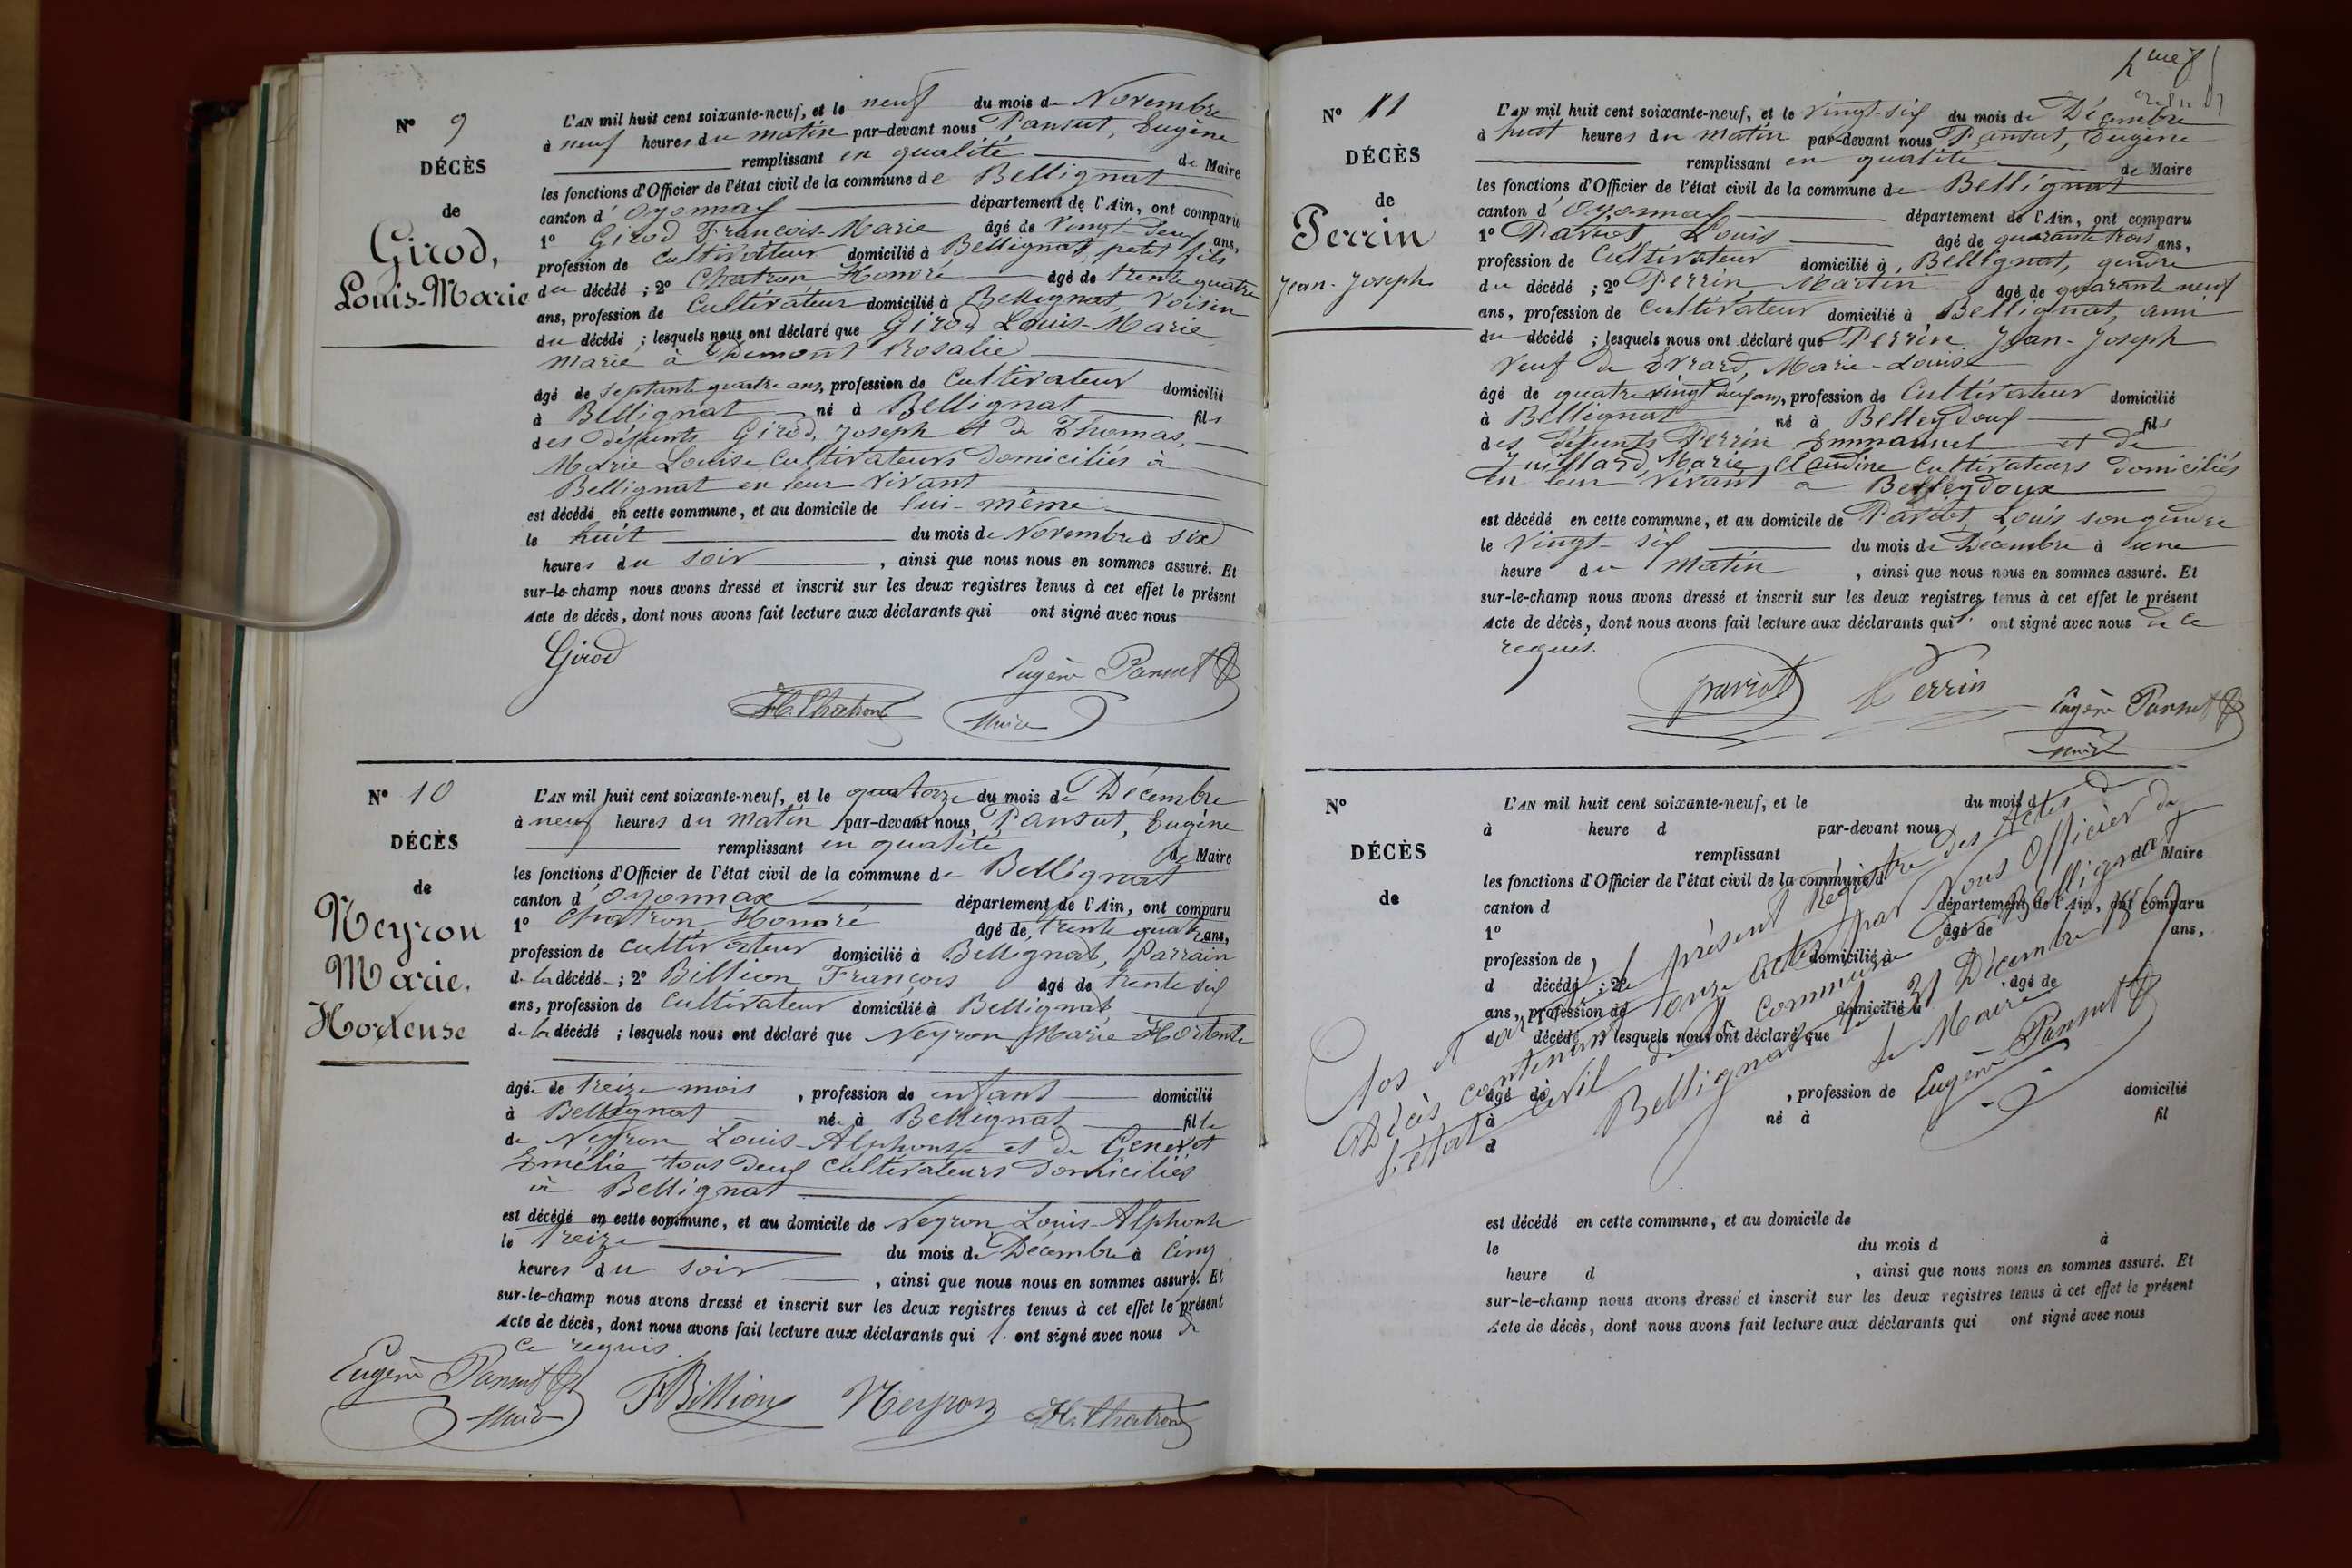 N° 9
DÉCÈS
de
Girod,
Louis-Marie
L'AN mil huit cent soixante-neuf, et le neuf du mois de Novembre
à neuf heures du matin par-devant nous Pansut, Eugène
remplissant en qualité de Maire
les fonctions d'Officier de l'état civil de la commune de Bellignat
canton d'Oyonnax département de l'Ain, ont comparu
1° Girod François-Marie âgé de Vingt-deux ans,
profession de Cultivateur domicilié à Bellignat, petit fils
du décédé ; 2° Chatron Honoré âgé de trente quatre
ans, profession de Cultivateur domicilié à Bellignat, Voisin
du décédé ; lesquels nous ont déclaré que Girod Louis-Marie
marié à Dumont Rosalie
âgé de septante quatre ans, profession de Cultivateur domicilié
à Bellignat né à Bellignat fils
des défunts Girod, Joseph et de Thomas,
Marie Louise Cultivateurs domiciliés à
Bellignat en leur vivant
est décédé en cette commune, et au domicile de lui-même
le huit du mois de Novembre à six
heures du soir , ainsi que nous nous en sommes assuré. Et
sur-le-champ nous avons dressé et inscrit sur les deux registres tenus à cet effet le présent
Acte de décès, dont nous avons fait lecture aux déclarants qui ont signé avec nous
Girod
Eugène Pansut
H. Chatron
Maire
N° 10
DÉCÈS
de
Neyron
Marie.
Hortense
L'AN mil huit cent soixante-neuf, et le quatorze du mois de Décembre
à neuf heures du matin par-devant nous, Pansut, Eugène
remplissant en qualité de Maire
les fonctions d'Officier de l'état civil de la commune de Bellignat
canton d'Oyonnax département de l'Ain, ont comparu
1° Chatron Honoré âgé de trente quatre ans,
profession de cultivateur domicilié à Bellignat, Parrain
de la décédé ; 2° Billion François âgé de trente six
ans, profession de Cultivateur domicilié à Bellignat
de la décédé ; lesquels nous ont déclaré que Neyron Marie Hortense
âgé de treize mois , profession de enfant domicilié
à Bellignat née à Bellignat fille
de Neyron Louis-Alphonse et de Genevot
Emélie tous deux cultivateurs domiciliés
à Bellignat
est décédé en cette commune, et au domicile de Neyron Louis-Alphonse
le treize du mois de Décembre à Cinq
heures du soir , ainsi que nous nous en sommes assuré. Et
sur-le-champ nous avons dressé et inscrit sur les deux registres tenus à cet effet le présent
Acte de décès, dont nous avons fait lecture aux déclarants qui ont signé avec nous de
ce requis.
Eugène Pansut
Maire
F Billion
Neyron
H. Chatron
N° 11
DÉCÈS
de
Perrin
Jean-Joseph
L'AN mil huit cent soixante-neuf, et le Vingt-six du mois de Décembre
à huit heures du matin par-devant nous Pansut, Eugène
remplissant en qualité de Maire
les fonctions d'Officier de l'état civil de la commune de Bellignat
canton d'Oyonnax département de l'Ain, ont comparu
1° Paviot Louis âgé de quarante trois ans,
profession de Cultivateur domicilié à Bellignat, gendre
du décédé ; 2° Perrin Martin âgé de quarante neuf
ans, profession de Cultivateur domicilié à Bellignat, ami
du décédé ; lesquels nous ont déclaré que Perrin Jean-Joseph
Veuf de Evrard, Marie-Louise
âgé de quatre vingt ans, profession de Cultivateur domicilié
à Bellignat né à Belleydoux fils
des défunts Perrin Emmanuel et de
Juillard, Marie Claudine Cultivateurs domiciliés
en leur vivant à Belleydoux
est décédé en cette commune, et au domicile de Paviot, Louis son gendre
le Vingt-six du mois de Décembre à une
heure du matin , ainsi que nous nous en sommes assuré. Et
sur-le-champ nous avons dressé et inscrit sur les deux registres tenus à cet effet le présent
Acte de décès, dont nous avons fait lecture aux déclarants qui ont signé avec nous de ce
requis.
paviot
Perrin
Eugène Pansut
Maire
N°
DÉCÈS
de
L'AN mil huit cent soixante-neuf, et le du mois d
à heure d par-devant nous
remplissant de Maire
les fonctions d'Officier de l'état civil de la commune d
canton d département de l'Ain, ont comparu
1° âgé de ans,
profession de domicilié à
d décédé ; 2° âgé de
ans, profession de domicilié à
d décédé ; lesquels nous ont déclaré que
âgé de , profession de domicilié
à né à fil
d
Clos et arrêté le présent Registre des Actes de
Décès contenant onze actes par Nous Officier de
l'état civil de la Commune de Bellignat
Bellignat le 31 Décembre 1869
le Maire
Eugène Pansut
est décédé en cette commune, et au domicile de
le du mois d à
heure d , ainsi que nous nous en sommes assuré. Et
sur-le-champ nous avons dressé et inscrit sur les deux registres tenus à cet effet le présent
Acte de décès, dont nous avons fait lecture aux déclarants qui ont signé avec nous